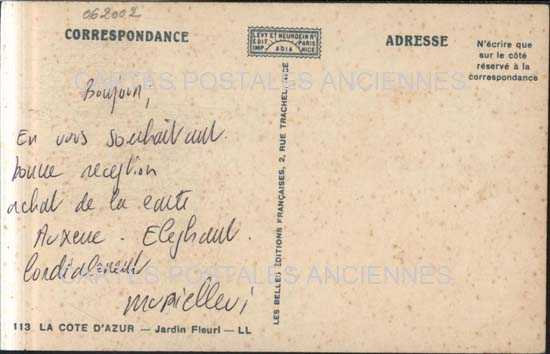 062002
CORRESPONDANCE
LÉVY ET NEURDEIN Rs
ÉDIT. PARIS
IMP. ADIA NICE
ADRESSE
N'écrire que
sur le côté
réservé à la
correspondance
CARTES POSTALES ANCIENNES
Bonjour,
En vous souhaitant
bonne reception
achat de la carte
Auxerre - Elephant.
Cordialement
CARTES POSTALES ANCIENNES
LES BELLES ÉDITIONS FRANÇAISES, 2, RUE TRACHEL, NICE
113 LA COTE D'AZUR — Jardin Fleuri — LL